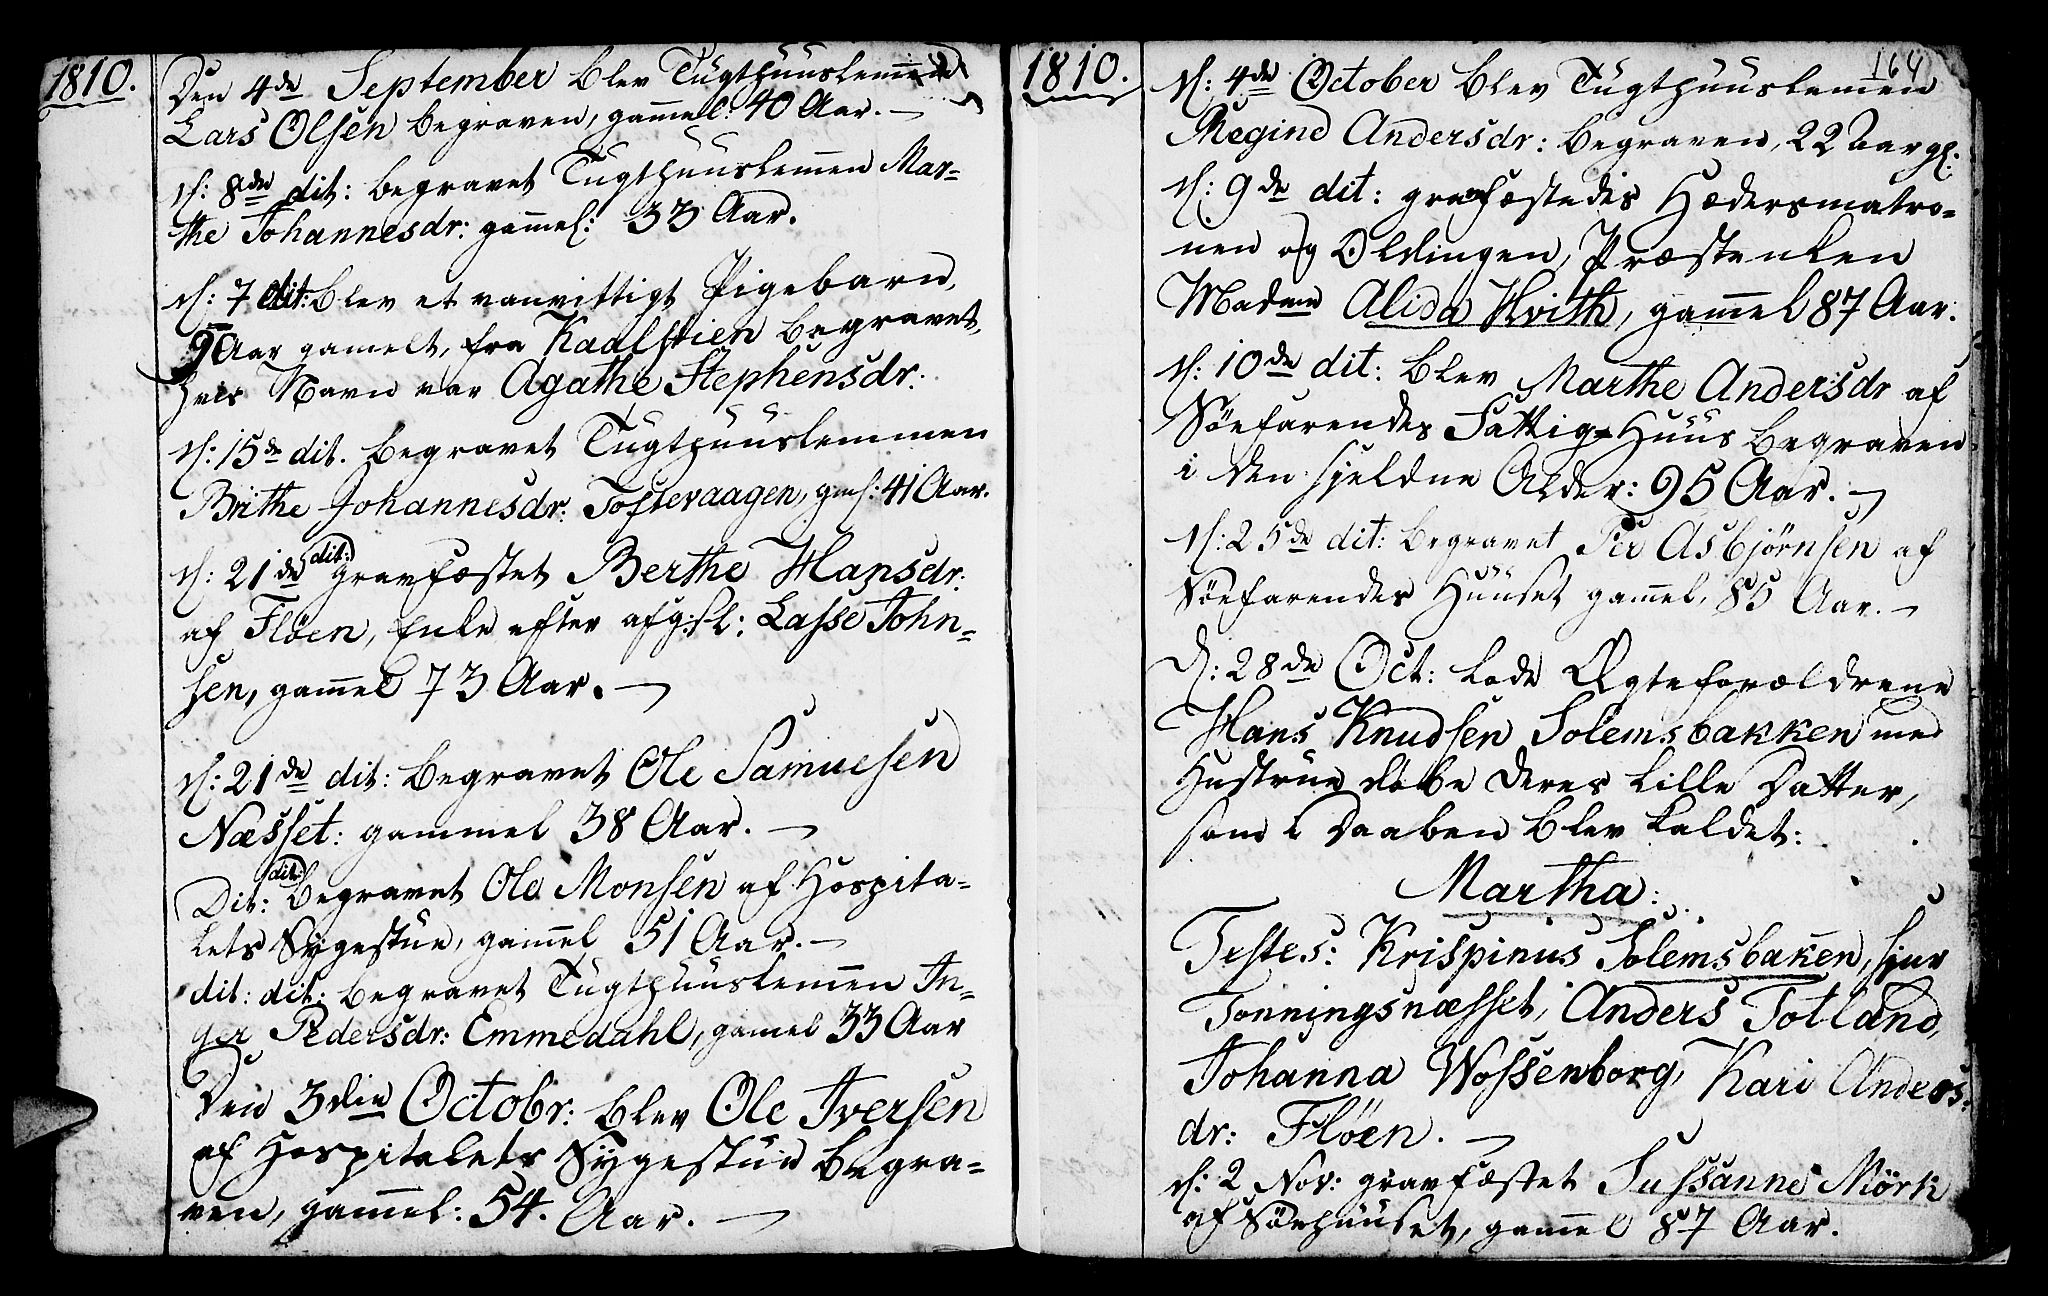 1810.
Den 4de September blev Tugthuuslemmen
Lars Olsen begraven, gam̅el: 40 Aar. —
d: 8de dit: begravet Tugthuuslem̅en Mar=
the Johannesdr: gam̅el: 33 Aar.
d: 7 dit: blev et vanvittigt Pigebarn,
9 Aar gamelt, fra Kaalstien begravet,
hvis Navn var Agathe Stephensdr:
d: 15de dit. begravet Tugthuuslemmen
Brithe Johannesdr: Toftevaagen, gml: 41 Aar.
d: 21de dit: gravfæstet Berthe Hansdr:
af Fløen, Enke efter afg: Sl: Lasse John=
sen, gam̅el 73 Aar. —
d: 21de dit: begravet Ole Samuelsen
Næsset: gammel 38 Aar. —
Dit: dit: begravet Ole Monsen af Hospita=
lets Sygestue, gam̅el 51 Aar. —
dit: dit: begravet Tugthuuslem̅en In=
ger Pedersdr: Emmedahl, gamel 33 Aar
Den 3die Octobr: blev Ole Iversen
af Hospitalets Sygestue begra=
ven, gam̅el: 54. Aar. —
1810.
164
d: 4de October blev Tugthuuslemen
Megind Andersdr: begraven, 22 Aar gl:
d: 9de dit: gravfæstedes Hædersmatro=
nen og Oldingen, Præstenken
Madme Alida Hvith, gam̅el 87 Aar.
d: 10de dit: blev Marthe Andersdr af
Søefarendes Fattig=Huus begraven
i den sjeldne Alder: 95 Aar. —
d: 25de dit: begravet Per Asbjørnsen af
Søefarendes Huuset gam̅el, 85 Aar. —
D: 28de Oct: lode Ægteforældrene
Hans Knudsen Solemsbakken med
Hustrue døbe deres lille Datter,
som i Daaben blev kaldet:
Martha:
Testes: Krispinus Solemsbaken, Sjur
Tonningsnæsset, Anders Totland,
Johanna Wossenborg, Kari Anders=
dr: Fløen. —
d: 2 Nov: gravfæstet Sussanne Mörk
af Söehuuset, gam̅el 87 Aar.